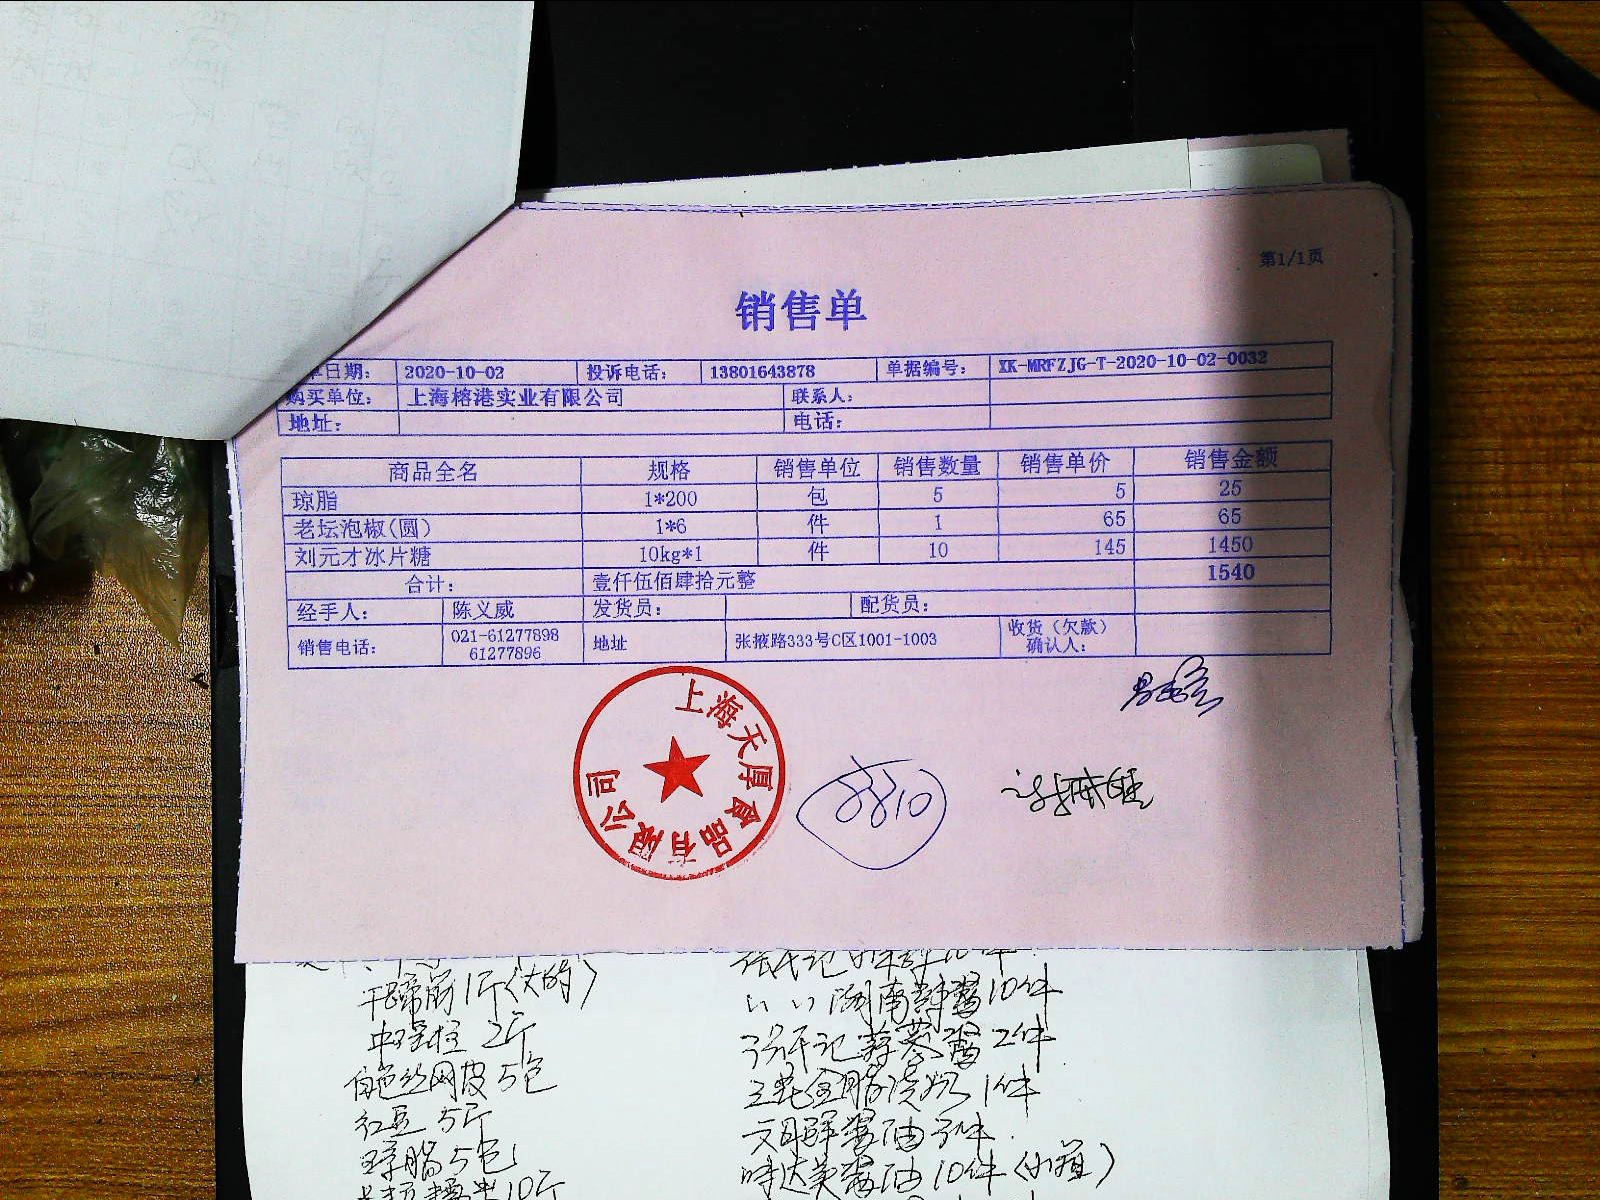 第1/1页
销售单
日期： 2020-10-02 投诉电话： 13801643878 单据编号： XK-MRFZJG-T-2020-10-02-0032
购买单位： 上海榕港实业有限公司 联系人：
地址： 电话：
商品全名 规格 销售单位 销售数量 销售单价 销售金额
琼脂 1*200 包 5 5 25
老坛泡椒(圆) 1*6 件 1 65 65
刘元才冰片糖 10kg*1 件 10 145 1450
合计： 壹仟伍佰肆拾元整 1540
经手人： 陈义威 发货员： 配货员：
销售电话： 021-61277898 61277896 地址 张掖路333号C区1001-1003 收货（欠款）确认人：
上海天厚食品有限公司
干蹄筋1斤(大的)
2斤
白色丝网皮5包
红豆 5斤
琼脂5包
10斤
10件
蒜蓉酱2件
1件
酱油
味达美酱油10件